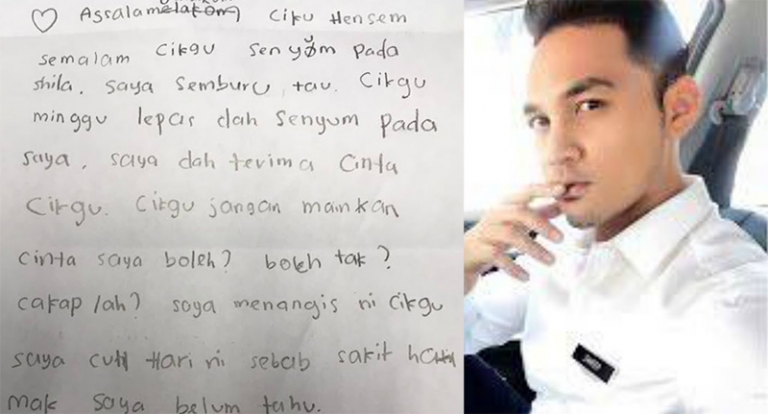 Assalamelakom Ciku Hensem
semalam Cikgu senyom pada
shila. saya semburu, tau. Cikgu
minggu lepas dah senyum pada
saya. saya dah terima cinta
cikgu. Cikgu jangan mainkan
cinta saya boleh? boleh tak?
cakap lah? saya menangis ni cikgu
saya cuti Hari ni sebab sakit hati
mak saya belum tahu.